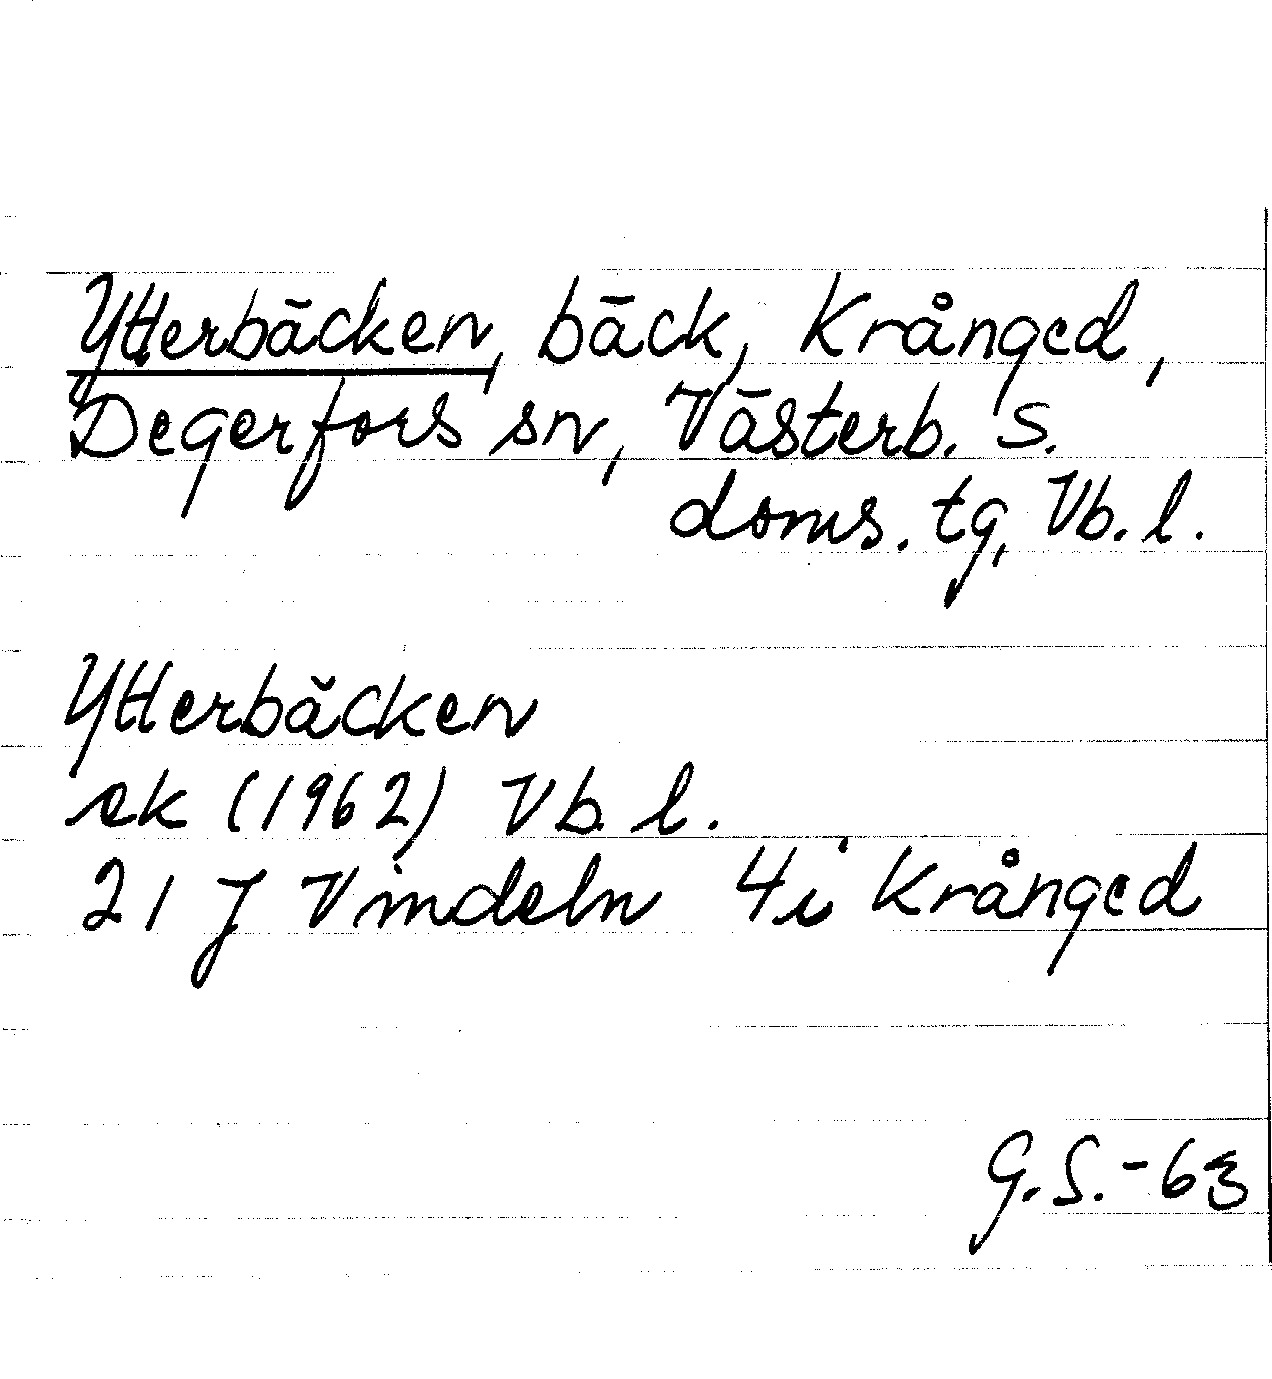 Ytterbäcken, bäck, Krånged,
Degerfors sn, Västerb. s.
doms. tg, Vb. l.
Ytterbäcken
ek (1962) Vb. l.
21 J Vindeln 4i Krånged
G.S.-63